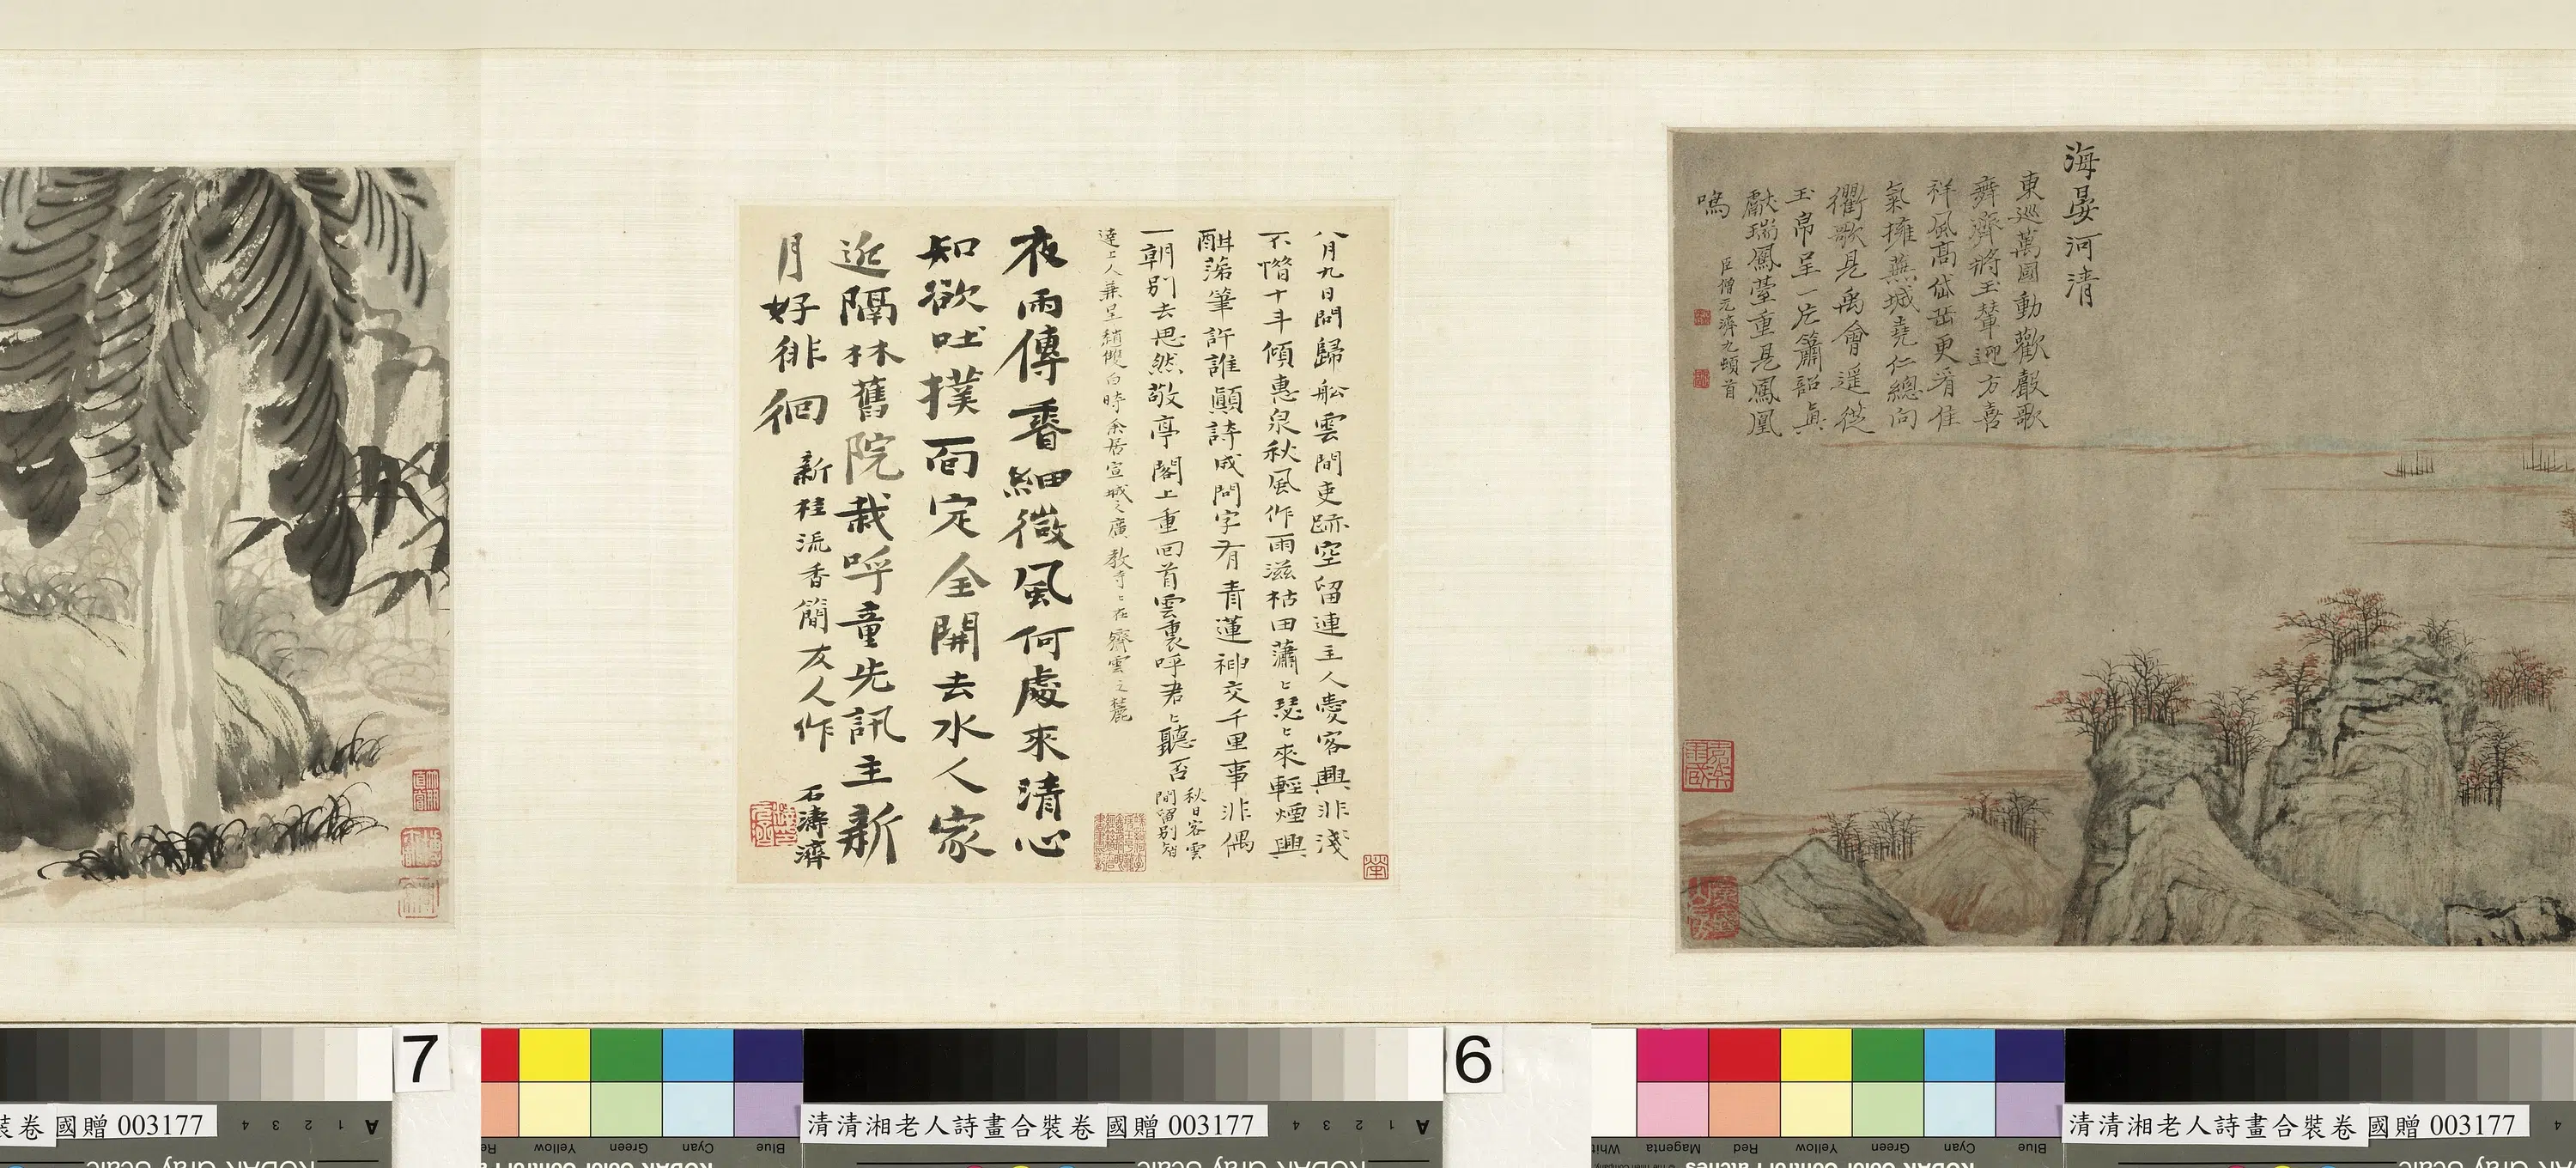 海晏河清
東巡萬國動歡聲歌
舜濟將玉輦迎方喜
祥風高岱岳更看佳
氣擁蕪城堯仁總向
衢歌見禹會遥從
玉帛呈一片簫韶真
獻瑞鳳臺重見鳳凰
鳴
臣僧元濟九頓首
八月九日問歸船雲間吏跡空留連主人愛客興非淺
不惜十斗傾惠泉秋風作雨滋枯田蕭〻瑟〻來輕煙興
酣落筆許誰顛詩成問字有青蓮神交千里事非偶
一朝別去思然敬亭閣上重回首雲裏呼君〻聽否
秋日客雲
間留別智
達上人兼呈趙雙白時余居宣城之廣教寺〻在齊雲之麓
夜雨傳香細微風何處來清心
知欲吐撲面定全開去水人家
近隔林舊院栽呼童先訊主新
月好徘徊
新桂流香簡友人作
石濤濟
7
6
裝卷
國贈 003177
清清湘老人詩畫合裝卷
國贈 003177
清清湘老人詩畫合裝卷
國贈 003177
A 1 2 3 4
KODAK Gray Scale
Blue Cyan Green Yellow Re
KODAK Color Control
A 1 2 3 4
KODAK Gray Scale
Blue Cyan Green Yellow Red Magenta Whit
KODAK Color Control Patches